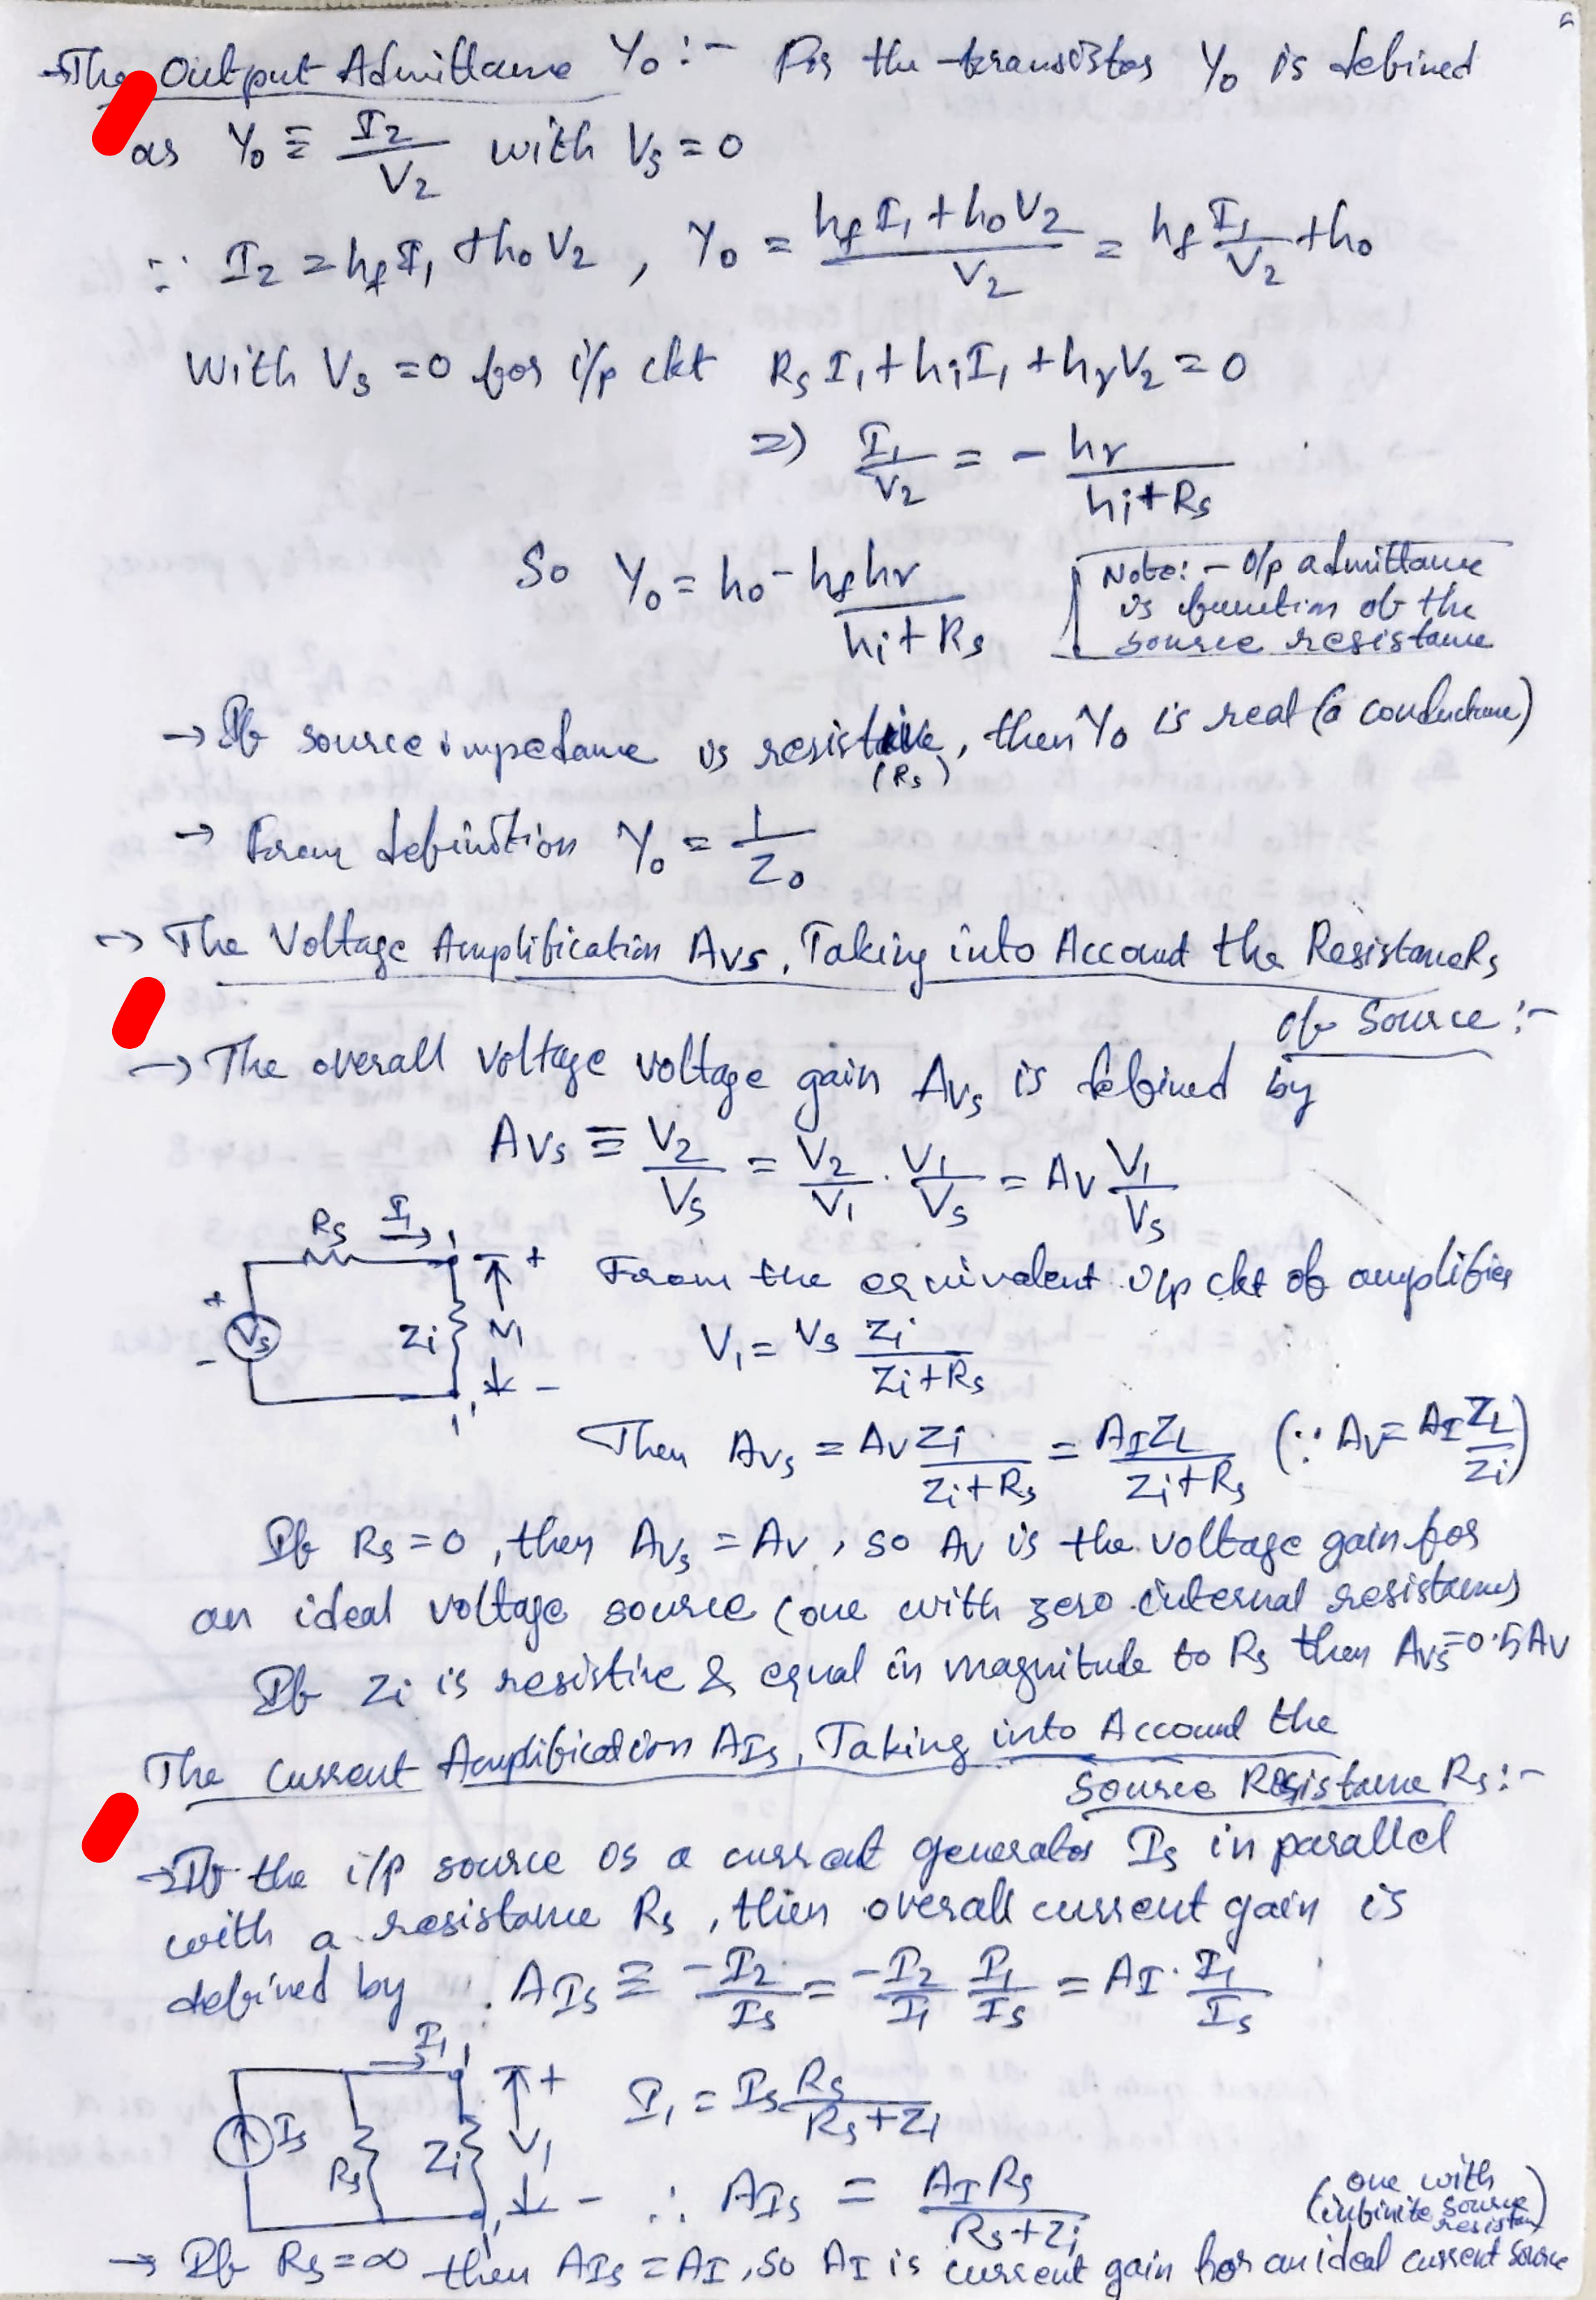 →The Output Admittance Y₀:- For the transistor Y₀ is defined
as Y₀ ≡ I₂/V₂ with Vs = 0
∵ I₂ = hf I₁ + h₀V₂, Y₀ = (hf I₁ + h₀V₂)/V₂ = hf I₁/V₂ + h₀
With Vs = 0 for i/p ckt Rs I₁ + hi I₁ + hr V₂ = 0
⇒ I₁/V₂ = - hr/(hi + Rs)
So Y₀ = h₀ - hf hr/(hi + Rs)
Note:- O/p admittance
is function of the
source resistance
→ If source impedance is resistive, then Y₀ is real (a conductance)
(Rs)
→ From definition Y₀ = 1/Z₀
→ The Voltage Amplification Avs, Taking into Account the Resistance Rs
of Source:-
→ The overall voltage voltage gain Avs is defined by
Avs ≡ V₂/Vs = V₂/V₁ . V₁/Vs = Av V₁/Vs
Rs I₁ 1 +
From the equivalent i/p ckt of amplifier
+ Vs - Zi V₁ - 1'
V₁ = Vs Zi/(Zi + Rs)
Then Avs = Av Zi/(Zi + Rs) = AI ZL/(Zi + Rs) (∵ Av = AI ZL/Zi)
If Rs = 0, then Avs = Av, so Av is the voltage gain for
an ideal voltage source (one with zero internal resistance)
If Zi is resistive & equal in magnitude to Rs then Avs = 0.5 Av
The Current Amplification AIs, Taking into Account the
Source Resistance Rs:-
→If the i/p source is a current generator Is in parallel
with a resistance Rs, then overall current gain is
defined by AIs ≡ -I₂/Is = -I₂/I₁ I₁/Is = AI . I₁/Is
I₁ 1 +
Is Rs Zi V₁ - 1'
I₁ = Is Rs/(Rs + Zi)
∴ AIs = AI Rs/(Rs + Zi)
(one with
infinite source
resistan)
→ If Rs = ∞ then AIs = AI, so AI is current gain for an ideal current source